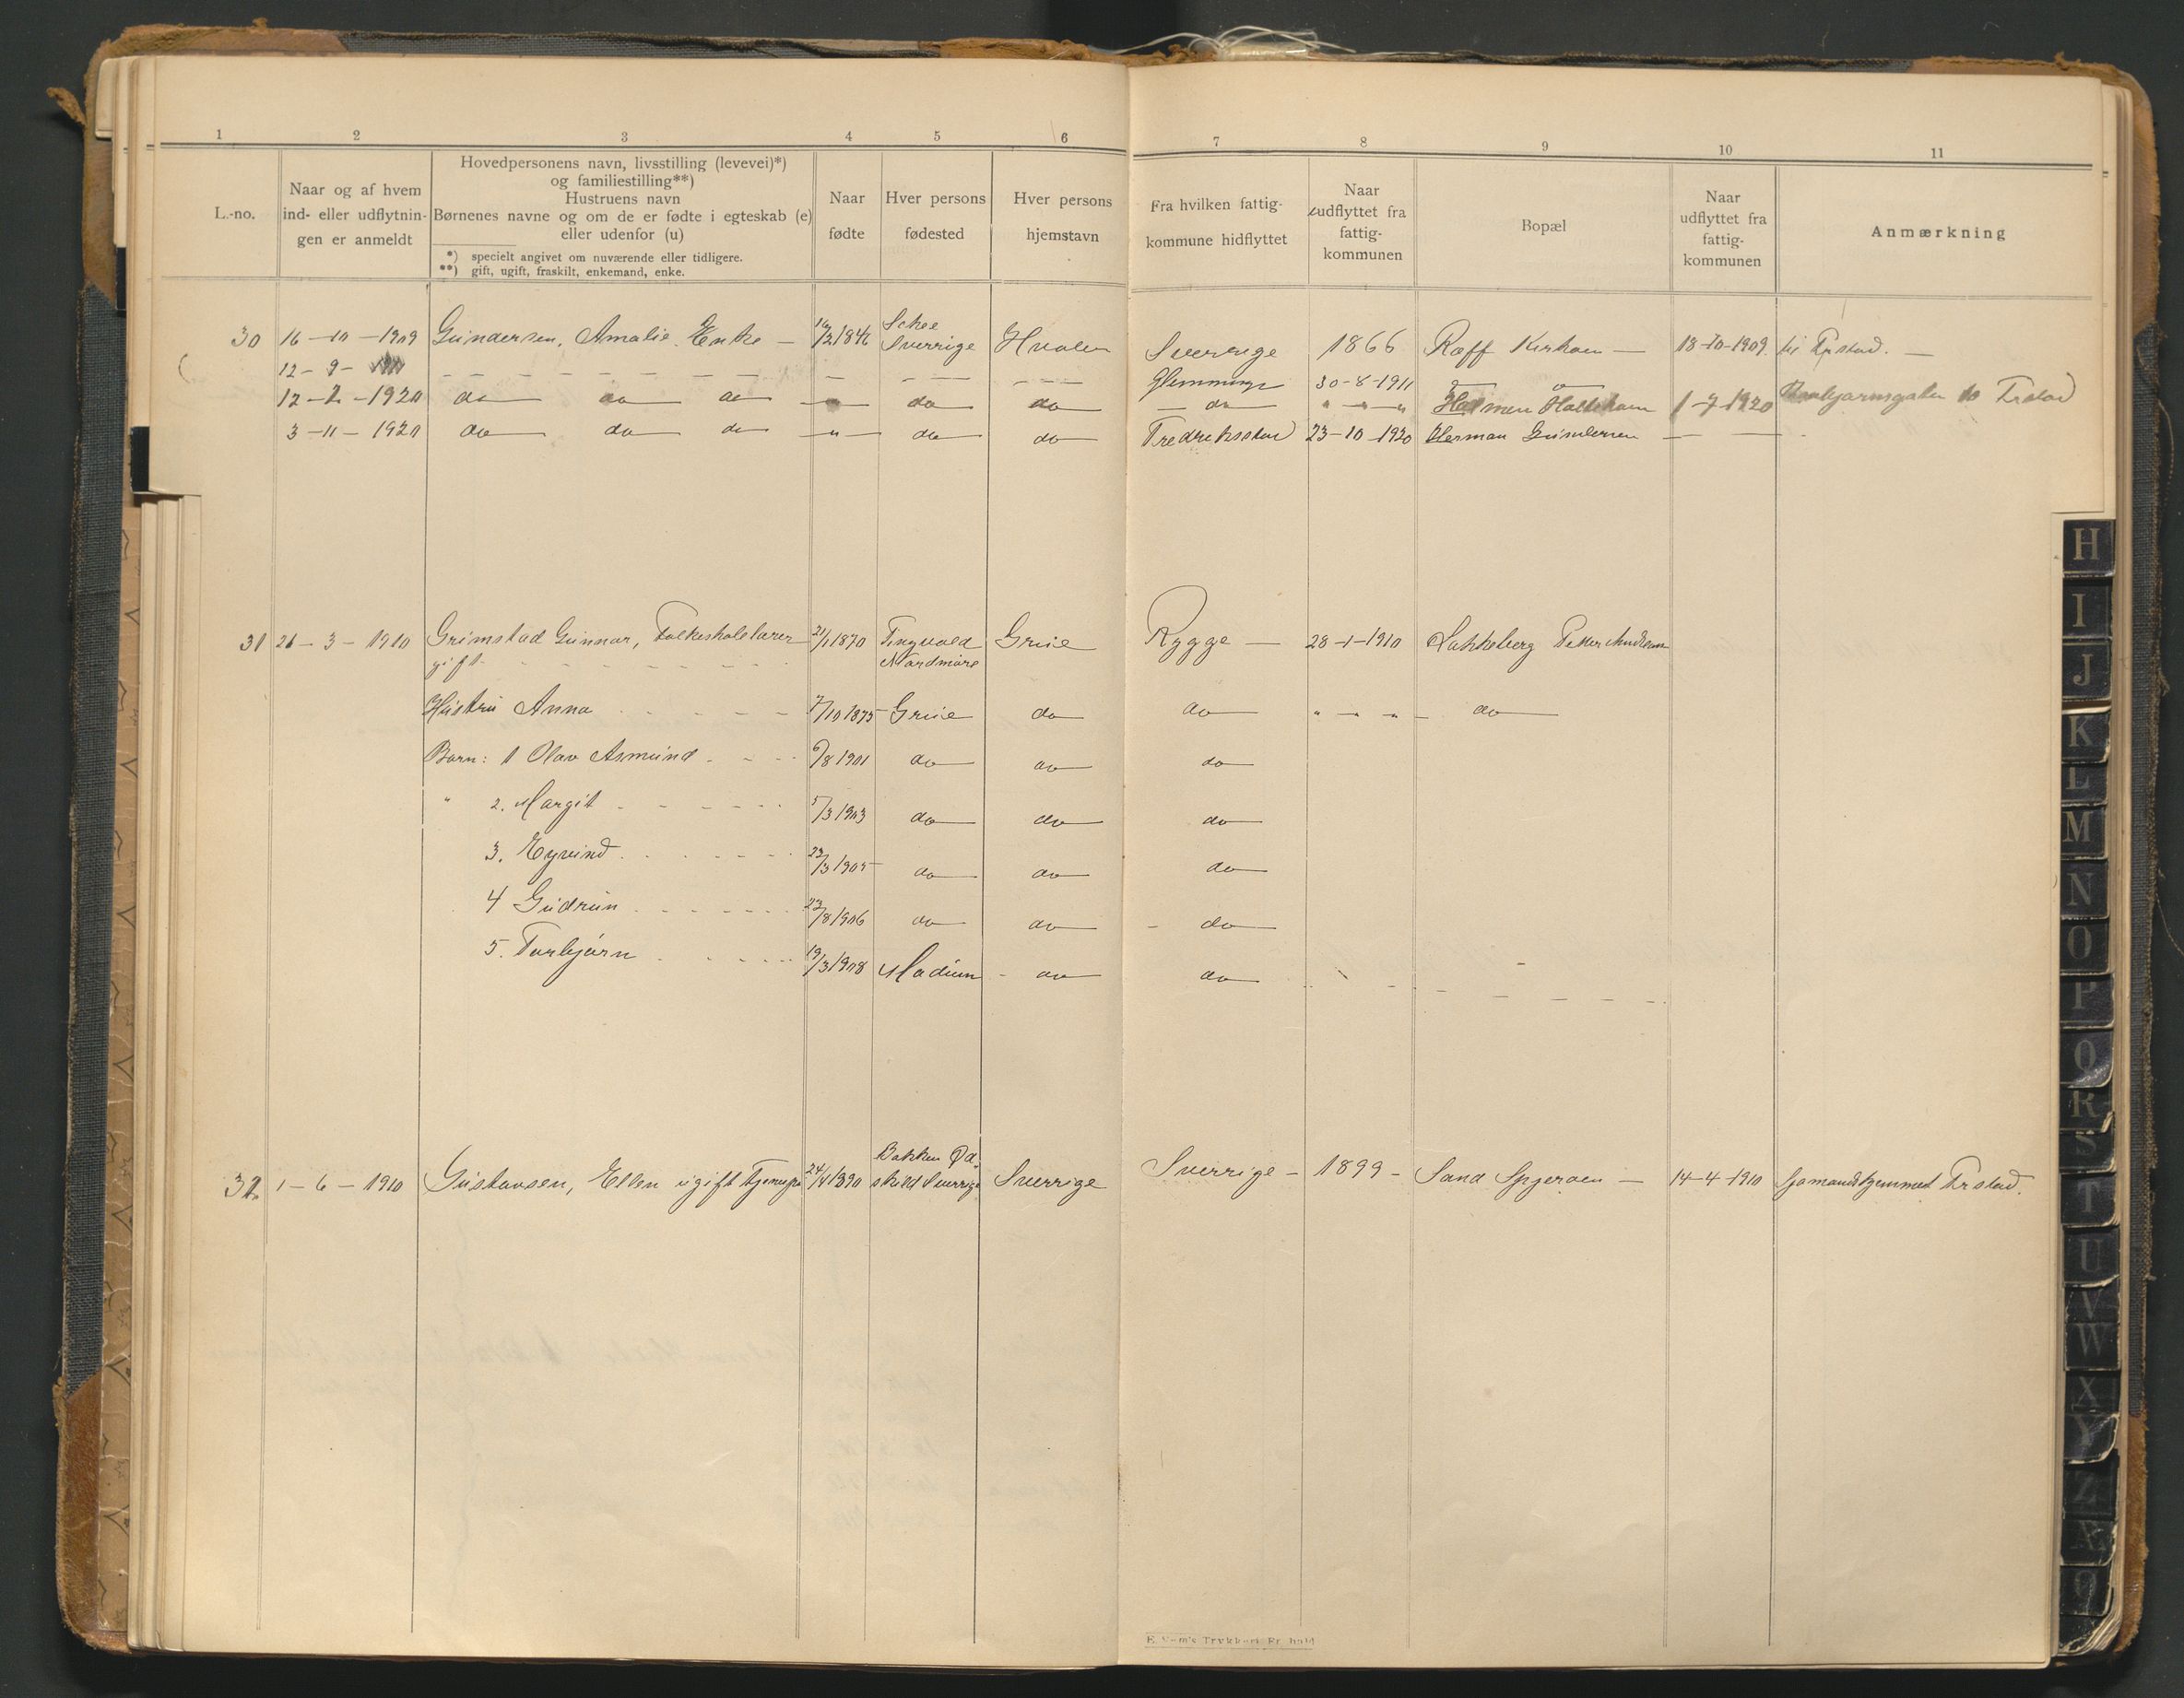 1 2 3 4 5 6 7 8 9 10 11
L.-no.
Naar og af hvem
ind- eller udflytnin-
gen er anmeldt
Hovedpersonens navn, livsstilling (levevei)*)
og familiestilling**)
Hustruens navn
Børnenes navne og om de er fødte i egteskab (e)
eller udenfor (u)
*) specielt angivet om nuværende eller tidligere.
**) gift, ugift, fraskilt, enkemand, enke.
Naar
fødte
Hver persons
fødested
Hver persons
hjemstavn
Fra hvilken fattig-
kommune hidflyttet
Naar
udflyttet fra
fattig-
kommunen
Bopæl
Naar
udflyttet fra
fattig-
kommunen
Anmærkning
30 16-10-1909 Gundersen, Amalie. Enke — 1846 Skee Sverrige Hvaler Sverrige 1866 Ræff Kirkøen — 18-10-1909 til Frstad. —
12-9- Glemminge 30-8-1911
12-2-1920 do do do do do do Holmen 1-7-1920 10 Frstad
3-11-1920 do do do " do do Fredriksstad 23-10-1920 Herman Gundersen
31 26-3-1910 Grimstad Gunnar, Folkeskolelærer 21/1 1870 Tingvold Grue Rygge — 28-1-1910 Lakkeberg Petter Andersen
gift Nordmøre
Hustru Anna 7/10 1875 Grue do do " " " do
Barn: 1 Olav Asmund 6/8 1901 do do do
" 2. Margit 5/3 1903 do do do
3. Eyvind 23/3 1905 do do do
4 Gudrun 23/8 1906 do do do
5. Torbjørn 19/3 1908 Modum do do
32 1-6-1910 Gustavsen, Ellen ugift 24/4 1890 Bakken Sverrige Sverrige Sverrige — 1899 — Sand Spjerøen — 14-4-1910 Sjømandshjemmet Frstad.
H
I
J
K
L
M
N
O
P
Q
R
S
T
U
V
W
X
Y
Z
Æ
Ø